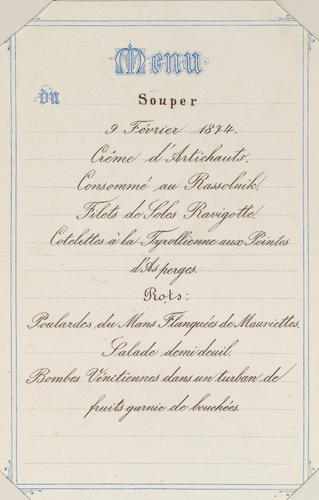 Menu
du
Souper
9 Février 1874.
Crême d'Artichauts.
Consommé au Rassolnik.
Filets de Soles Ravigotte.
Cotelettes à la Tyrollienne aux Pointes
d'Asperges.
Rots:
Poulardes du Mans Flanquées de Mauviettes.
Salade demi deuil.
Bombes Vénitiennes dans un turban de
fruits garnie de bouchées.